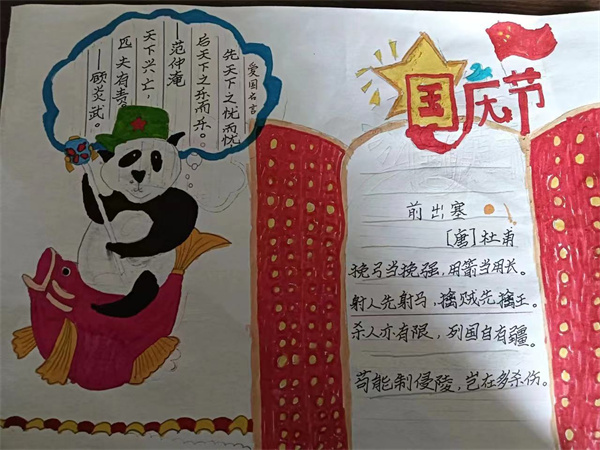 国庆节
爱国名言
先天下之忧而忧
后天下之乐而乐。
—范仲淹
天下兴亡，
匹夫有责
—顾炎武。
前出塞
[唐]杜甫
挽弓当挽强，用箭当用长。
射人先射马，擒贼先擒王。
杀人亦有限，列国自有疆。
苟能制侵陵，岂在多杀伤。